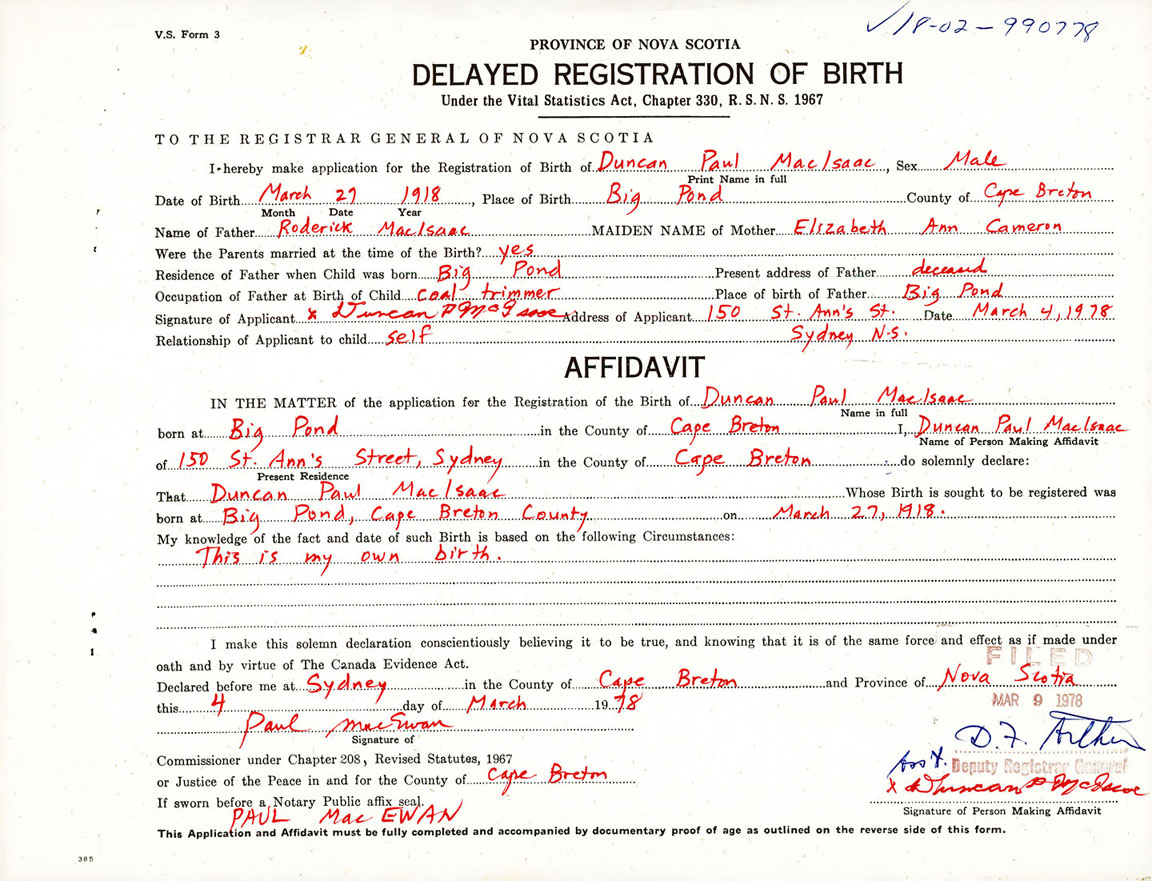 V.S. Form 3
√18-02-990778
PROVINCE OF NOVA SCOTIA
DELAYED REGISTRATION OF BIRTH
Under the Vital Statistics Act, Chapter 330, R. S. N. S. 1967
TO THE REGISTRAR GENERAL OF NOVA SCOTIA
I hereby make application for the Registration of Birth of Duncan Paul MacIsaac, Sex Male
Print Name in full
Date of Birth March 27 1918, Place of Birth Big Pond County of Cape Breton
Month Date Year
Name of Father Roderick MacIsaac MAIDEN NAME of Mother Elizabeth Ann Cameron
Were the Parents married at the time of the Birth? yes
Residence of Father when Child was born Big Pond Present address of Father deceased
Occupation of Father at Birth of Child coal trimmer Place of birth of Father Big Pond
Signature of Applicant x Duncan P McIsaac Address of Applicant 150 St. Ann's St. Date March 4, 1978
Relationship of Applicant to child self Sydney N.S.
AFFIDAVIT
IN THE MATTER of the application for the Registration of the Birth of Duncan Paul MacIsaac
Name in full
born at Big Pond in the County of Cape Breton I, Duncan Paul MacIsaac
Name of Person Making Affidavit
of 150 St. Ann's Street, Sydney in the County of Cape Breton do solemnly declare:
Present Residence
That Duncan Paul MacIsaac Whose Birth is sought to be registered was
born at Big Pond, Cape Breton County on March 27, 1918.
My knowledge of the fact and date of such Birth is based on the following Circumstances:
This is my own birth.
I make this solemn declaration conscientiously believing it to be true, and knowing that it is of the same force and effect as if made under
oath and by virtue of The Canada Evidence Act.
FILED
Declared before me at Sydney in the County of Cape Breton and Province of Nova Scotia
MAR 9 1978
this 4 day of March 1978
Paul MacEwan
Signature of
D. F. Arthur
Commissioner under Chapter 208, Revised Statutes, 1967
Deputy Registrar General
or Justice of the Peace in and for the County of Cape Breton
x Duncan P McIsaac
If sworn before a Notary Public affix seal.
Signature of Person Making Affidavit
PAUL MacEWAN
This Application and Affidavit must be fully completed and accompanied by documentary proof of age as outlined on the reverse side of this form.
385